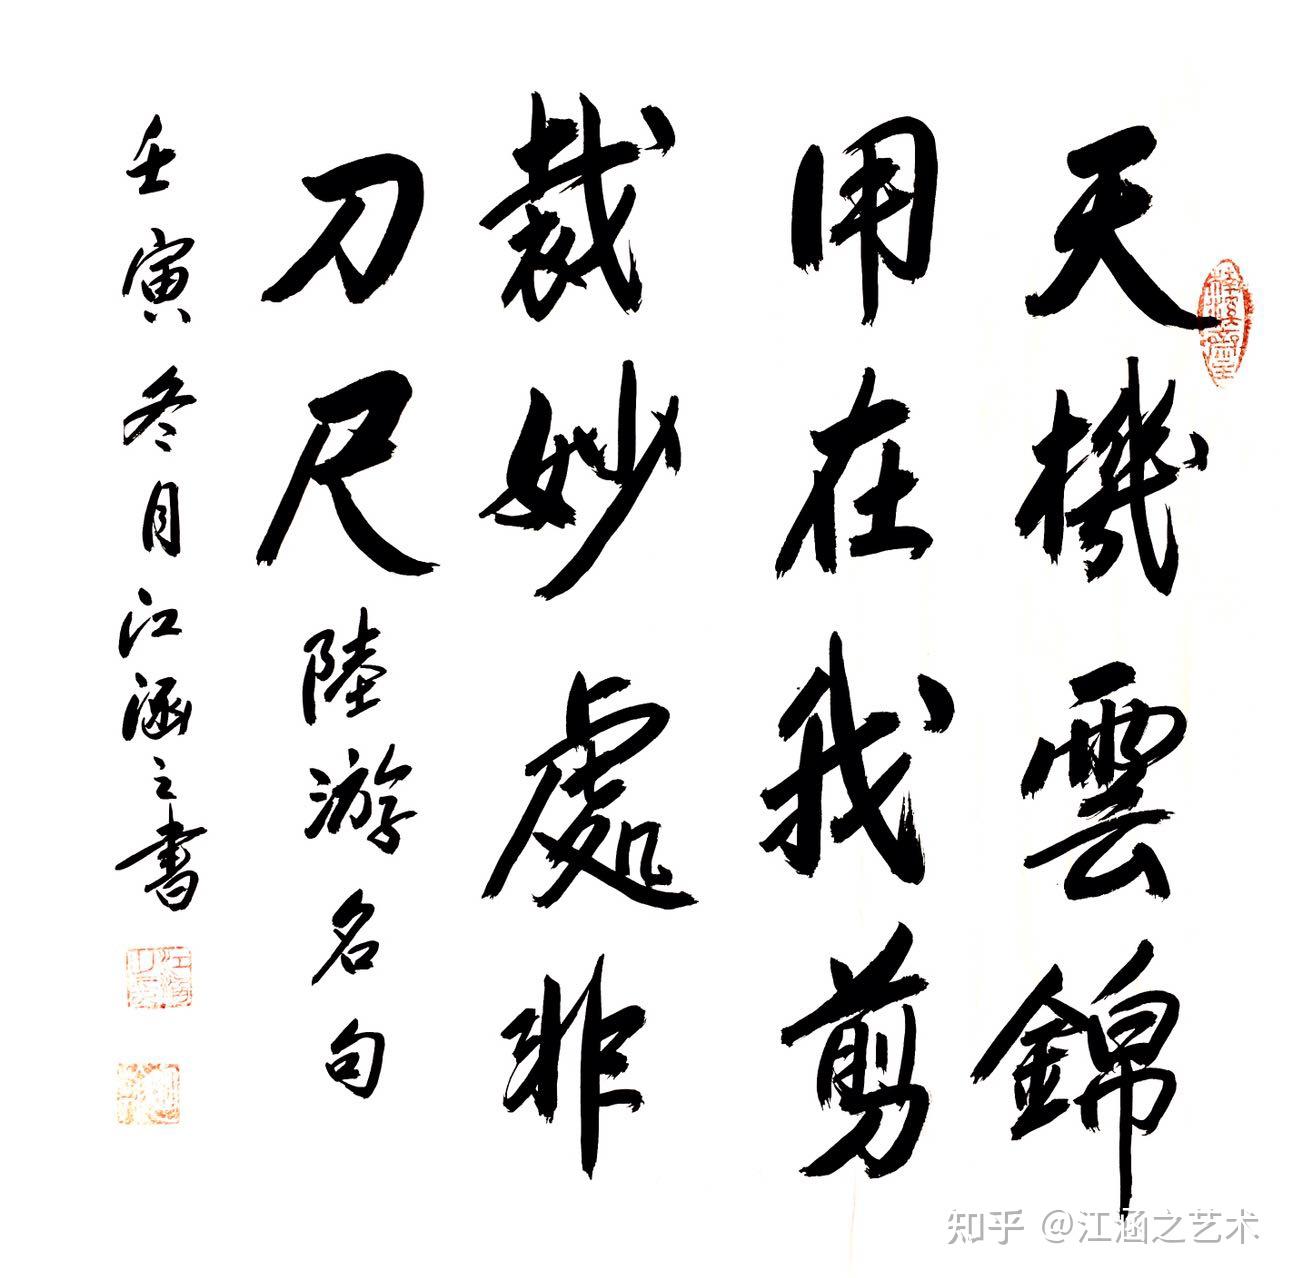 天機雲錦
用在我剪
裁妙處非
刀尺
陸游名句
壬寅冬月江涵之書
知乎 @江涵之艺术